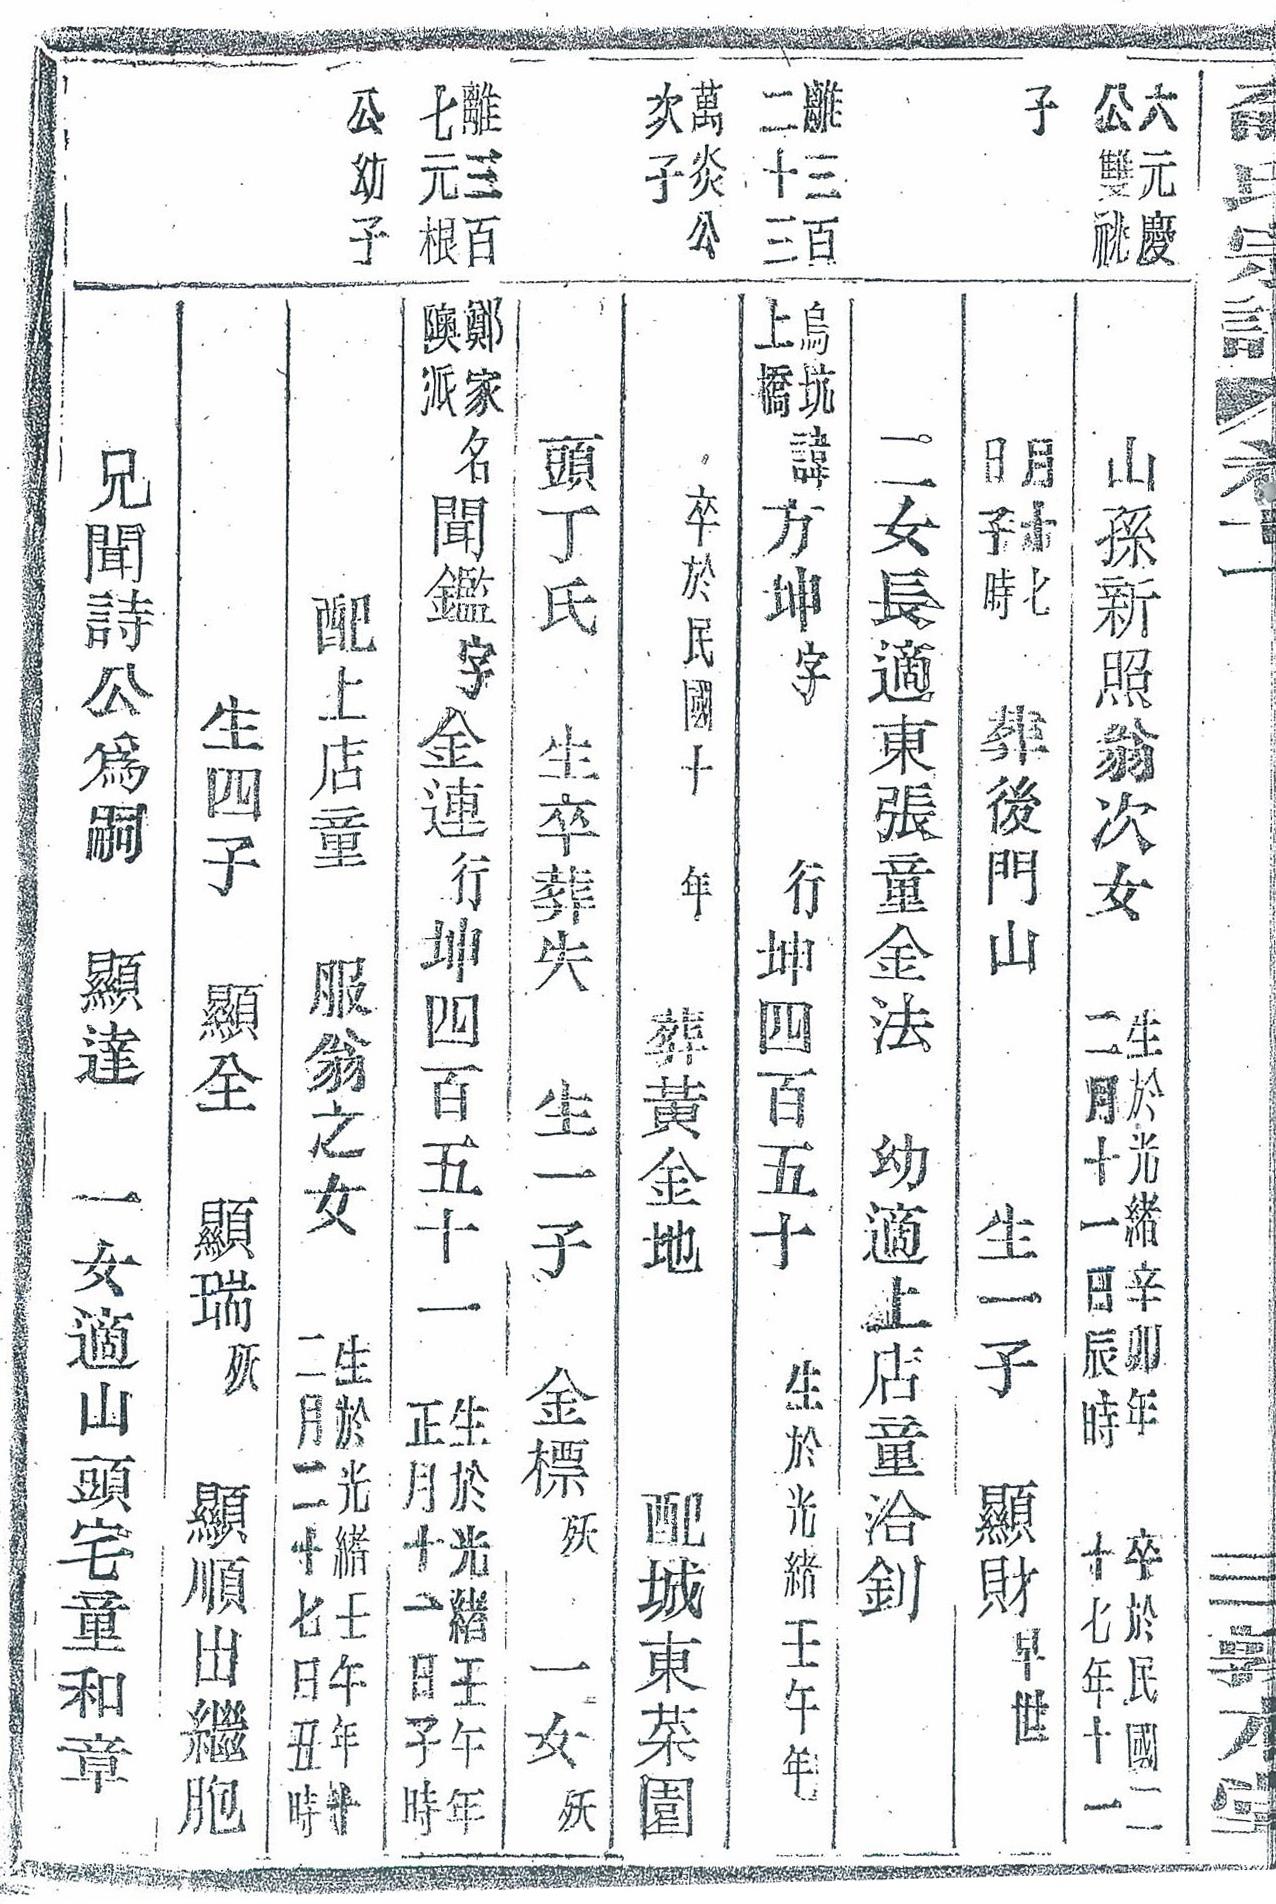 氏宗譜 卷二
敦本堂
六元慶
公雙祧
子
離三百
二十三
萬炎公
次子
離三百
七元根
公幼子
山孫新照翁次女 生於光緒辛卯年二月十一日辰時 卒於民國二十七年十一
月十七日子時 葬後門山 生一子 顯財早世
二女長適東張童金法 幼適上店童洽釗
烏坑上橋 諱方坤字 行坤四百五十 生於光緒壬午年
卒於民國十 年 葬黃金地 配城東菜園
頭丁氏 生卒葬失 生一子 金標殀 一女殀
鄭家隩派 名聞鑑字金連行坤四百五十一 生於光緒壬午年正月十一日子時
配上店童 服翁之女 生於光緒壬午年十二月二十七日丑時
生四子 顯全 顯瑞殀 顯順出繼胞
兄聞詩公為嗣 顯達 一女適山頭宅童和章